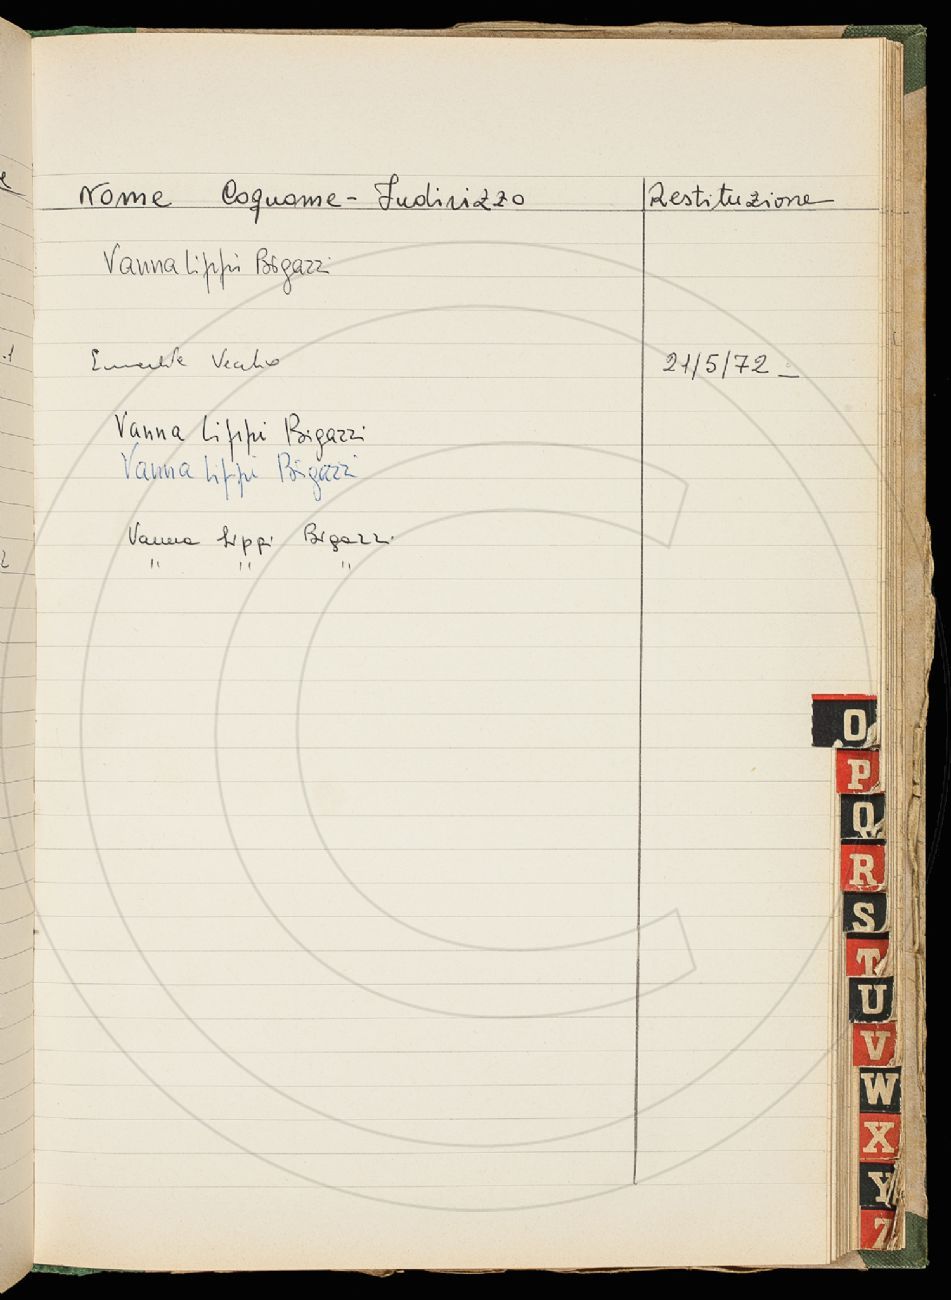 Nome Cognome - Indirizzo Restituzione
Vanna Lippi Bigazzi
21/5/72 -
Vanna Lippi Bigazzi
Vanna Lippi Bigazzi
Vanna Lippi Bigazzi
" " "
O
P
Q
R
S
T
U
V
W
X
Y
Z